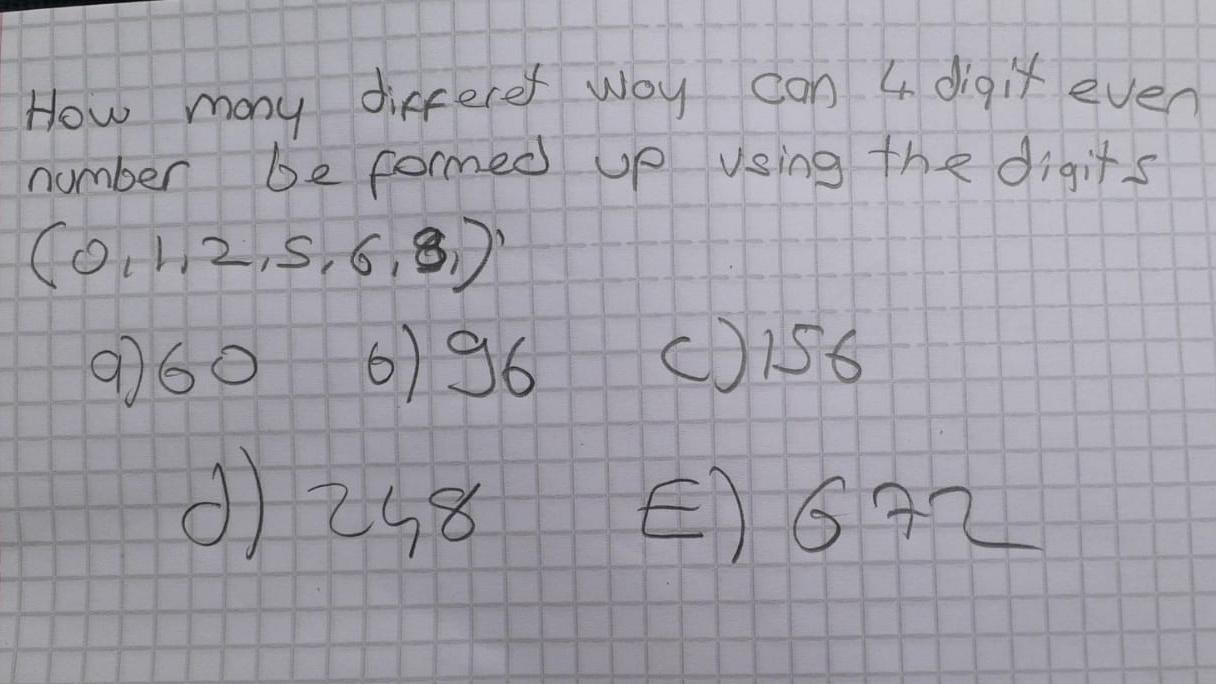 How many differet way can 4 digit even
number be formed up using the digits
(0,1,2,5,6,8,)'
a)60 b) 96 c)156
d) 248 E) 672